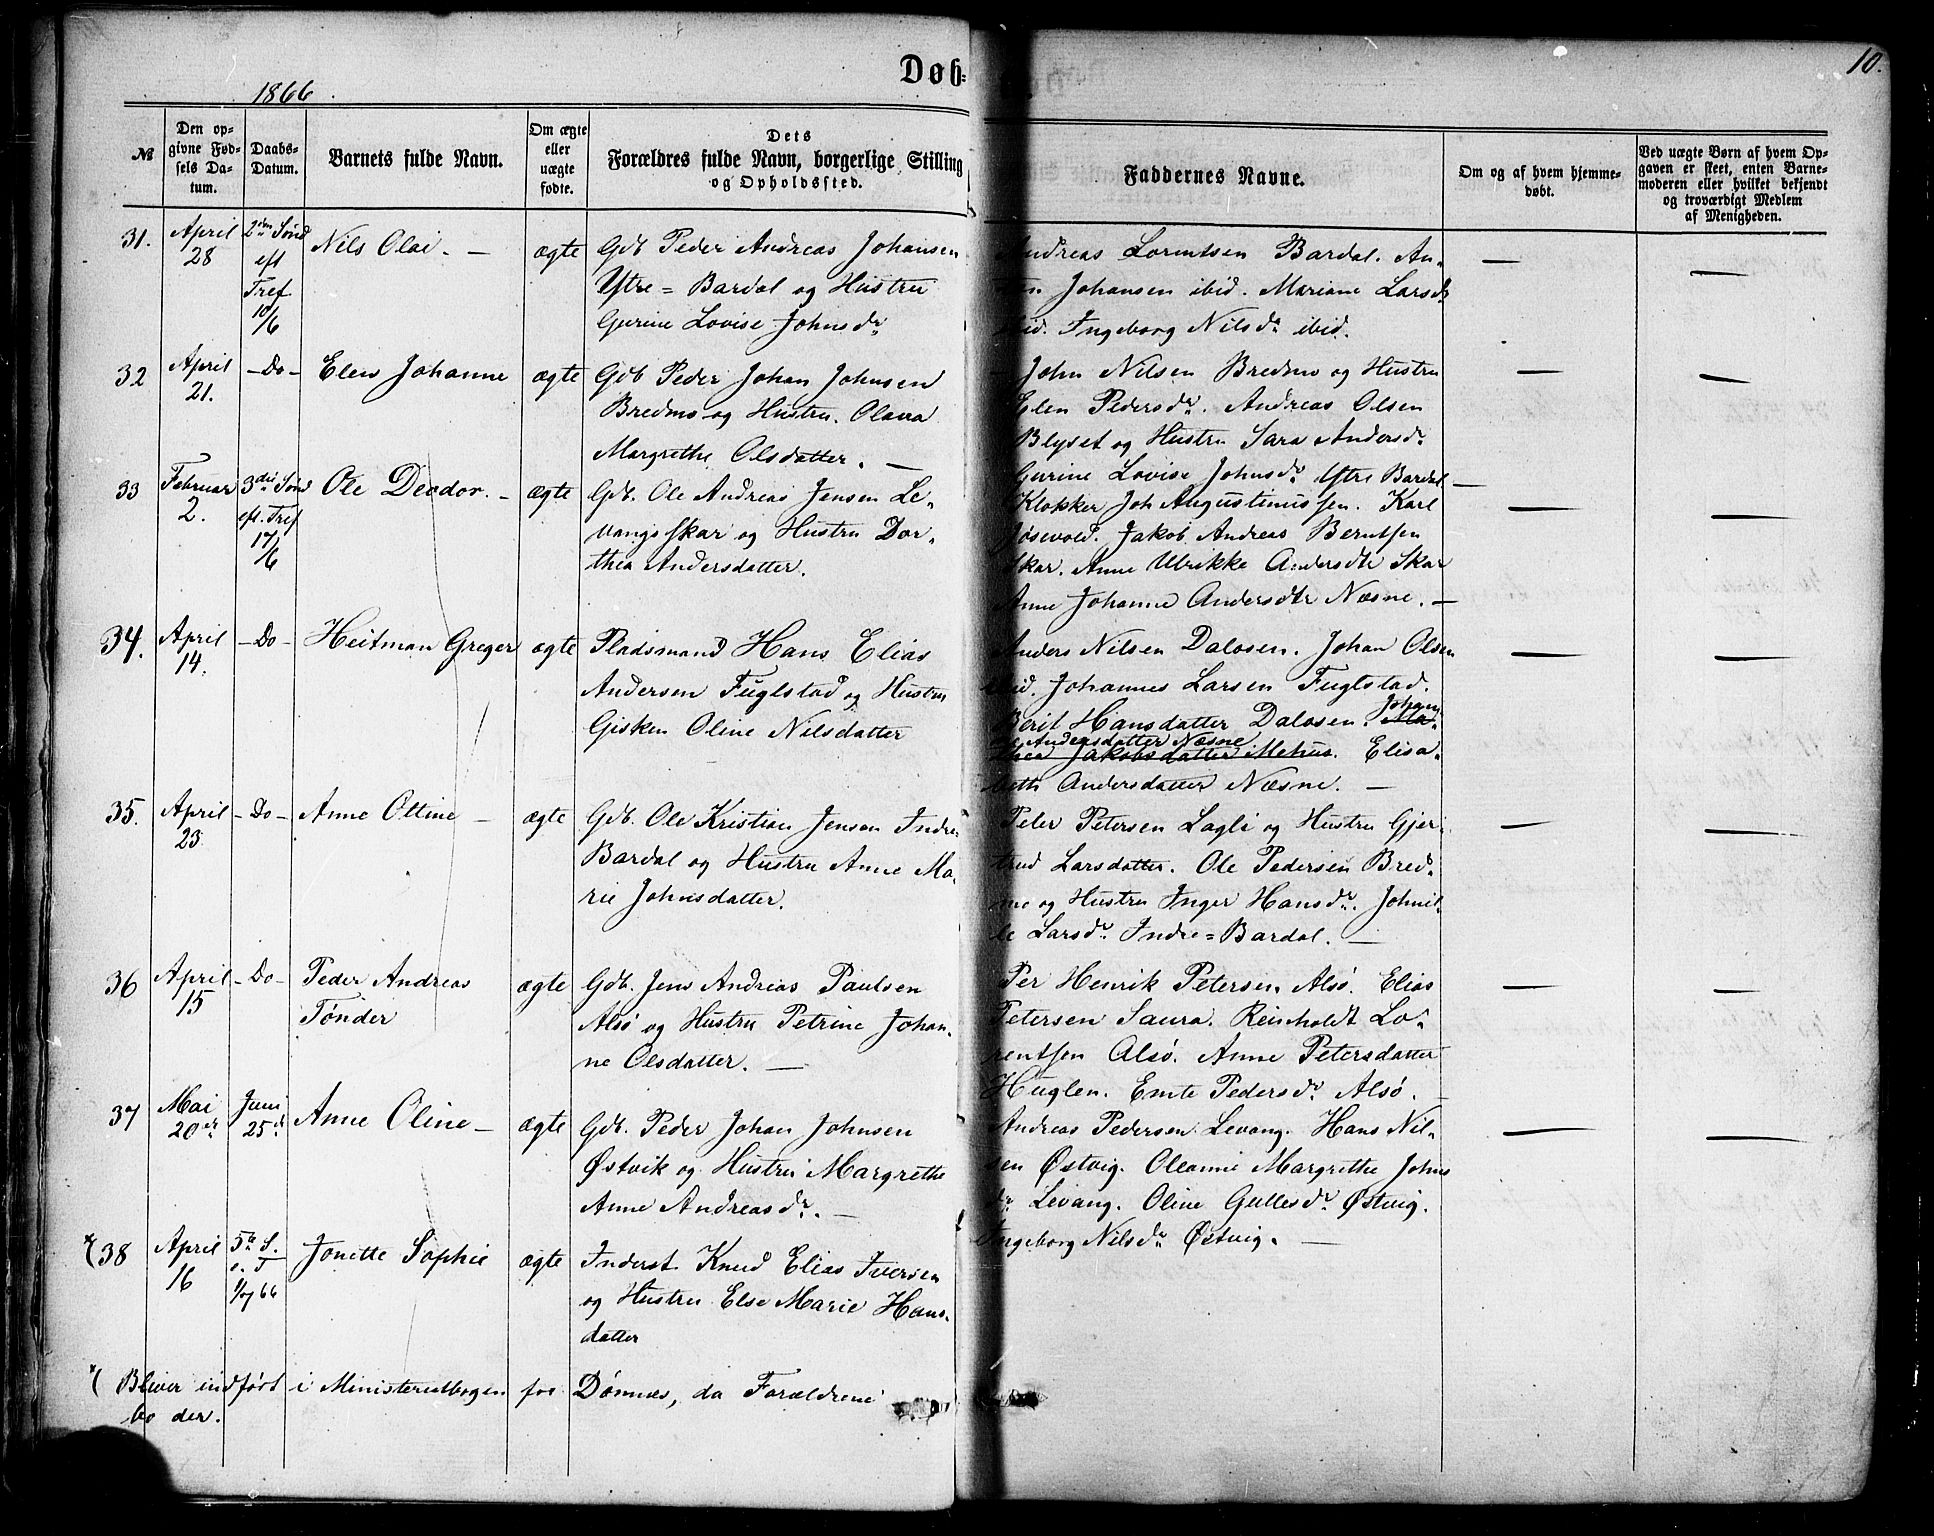 1866.
Døb-
10.
№
Den op-
givne Fød-
sels Da-
tum.
Daabs-
Datum.
Barnets fulde Navn.
Om ægte
eller
uægte
fødte.
Dets
Forældres fulde Navn, borgerlige Stilling
og Opholdssted.
Faddernes Navne.
Om og af hvem hjemme-
døbt.
Ved uægte Børn af hvem Op-
gaven er skeet, enten Barne-
moderen eller hvilket bekjendt
og troværdigt Medlem
af Menigheden.
31.
April
28
2den Sønd
eft
Tref
10/6
Nils Olai. —
ægte
Gdb Peder Andreas Johansen
Ytre = Bardal og Hustru
Gurine Lovise Johnsdr
Andreas Lorentsen Bardal. An-
Johansen ibid. Mariane Larsdr
ibid. Ingeborg Nilsdr ibid.
—
—
32
April
21.
- Do -
Elen Johanne
ægte
Gdb Peder Johan Johnsen
Bredmo og Hustru. Olava
Margrethe Olsdatter. —
John Nilsen Bredmo og Hustru
Elen Pedersdr. Andreas Olsen
Blyset og Hustru Sara Andersdr
Gurine Lovise Johnsdr Ytre Bardal —
—
—
33
Februar
2.
3die Sønd
eft. Tref
17/6
Ole Deodor. -
ægte
Gdb. Ole Andreas Jensen Le-
vangsskar og Hustru Dor-
thea Andersdatter.
Klokker Joh Augustinussen. Karl
Jøsevold. Jakob Andreas Berntsen
Skar. Anne Ulrikke Andersdtr Skar
Anne Johanne Andersdtr Næsne. —
—
—
34.
April
14.
- Do -
Heitman Greger
ægte
Pladsmand Hans Elias
Andersen Fuglstad og Hustru
Gisken Oline Nilsdatter
Anders Nilsen Dalosen. Johan Olsen
ibid. Johannes Larsen Fuglstad.
Berit Hansdatter Dalosen. Johan
Andersdatter Næsne
Jakobsdatter Mehus. Elisa-
beth Andersdatter Næsne. —
—
—
35.
April
23
- Do -
Anne Oltine —
ægte
Gdb. Ole Kristian Jensen Indre
Bardal og Hustru Anne Ma-
rie Johnsdatter.
Peter Petersen Lagli og Hustru Gjer
trud Larsdatter. Ole Pedersen Bred-
mo og Hustru Inger Hansdr. Johnil-
le Larsdr Indre = Bardal. —
—
—
36
April
15
- Do -
Peder Andreas
Tønder
ægte
Gdb. Jens Andreas Paulsen
Alsø og Hustru Petrine Johan-
ne Olsdatter. —
Per Henrik Petersen Alsø. Elias
Petersen Saura. Reinholdt Lo-
rentsen Alsø. Anne Petersdatter
Huglen. Emte Pedersdr Alsø. —
—
—
37
Mai
20de
Juni
25de
Anne Oline —
ægte
Gdb. Peder Johan Johnsen
Østvik og Hustru Margrethe
Anne Andreasdr. —
Andreas Pedersen Levang. Hans Nil-
sen Østvig. Oleanne Margrethe Johns
dr Levang. Oline Gullesdr Østvig.
Ingeborg Nilsdr Østvig. —
—
—
*( 38
April
16
5te S.
e. T
1/7 66
Jonette Sophie
ægte
Inderst Knud Elias Iversen
og Hustru Else Marie Hans-
datter
*( Bliver indført i Ministerialbogen for Dønnæs, da Forældrene
bo der.